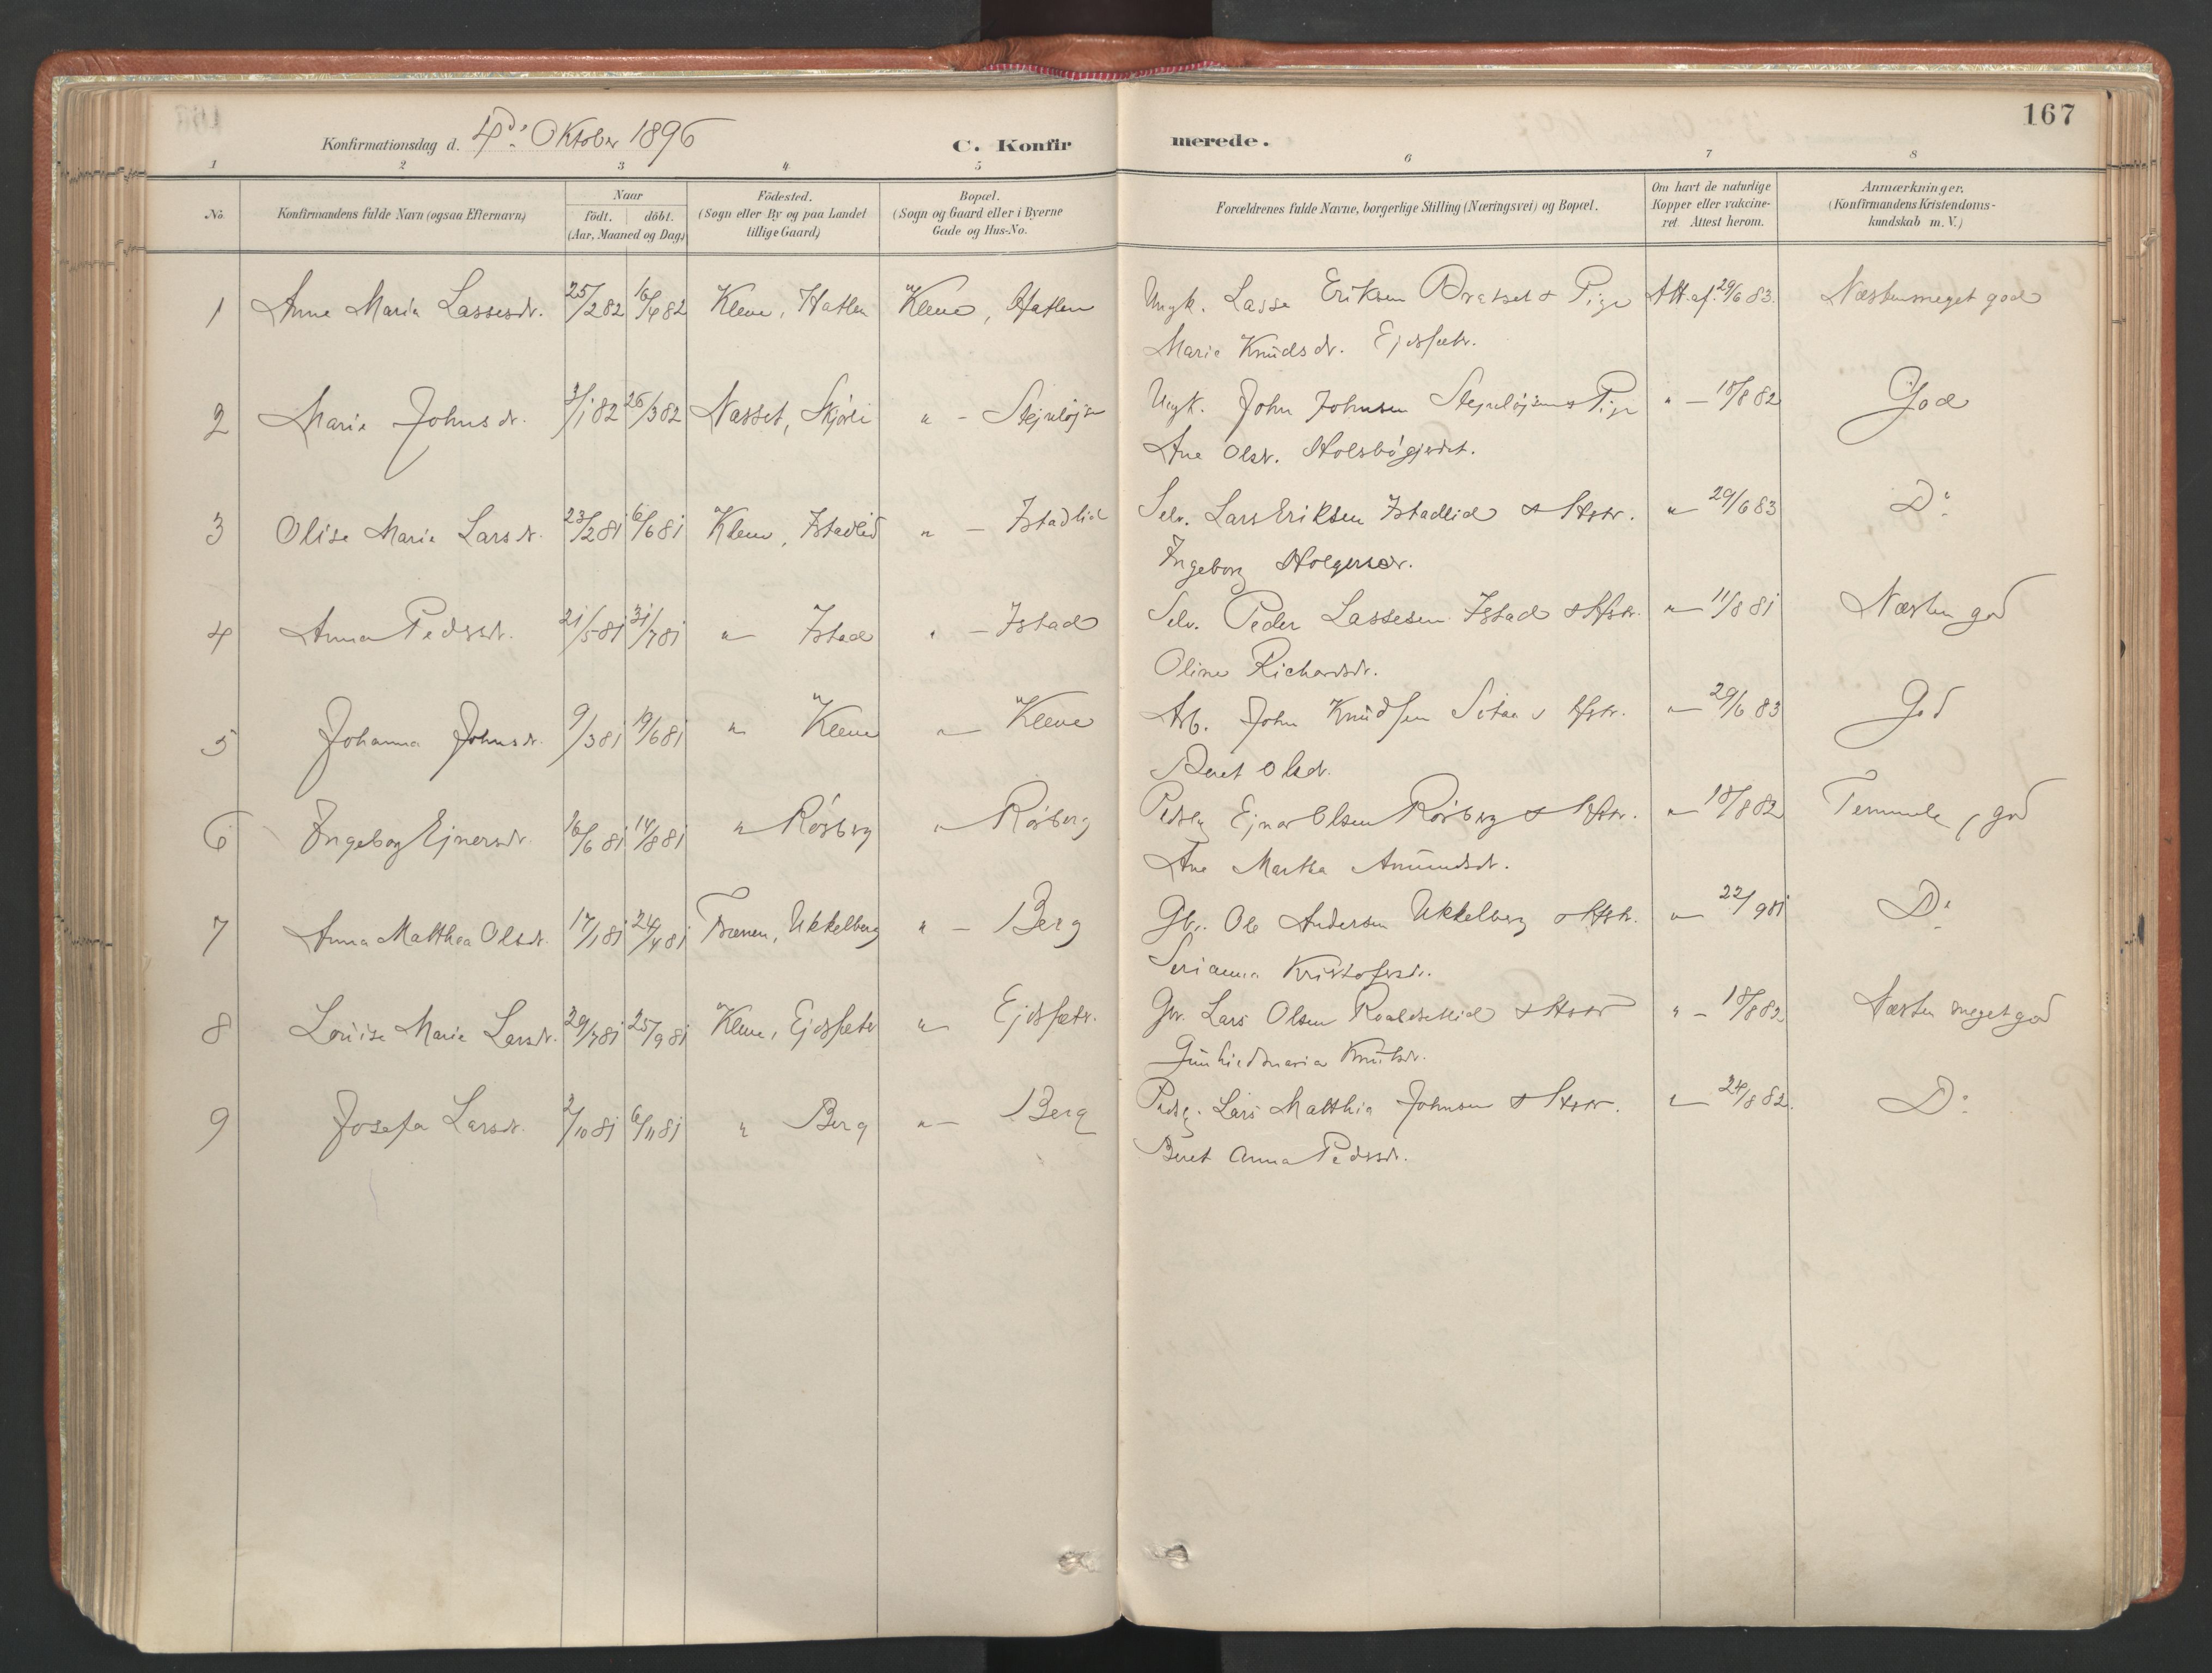 167
Konfirmationsdag d. 4de Oktober 1896 C. Konfirmerede.
1 2 3 4 5 6 7 8
No. Konfirmandens fulde Navn (ogsaa Efternavn) Naar födt. döbt. (Aar, Maaned og Dag) Födested. (Sogn eller By og paa Landet tillige Gaard) Bopæl. (Sogn og Gaard eller i Byerne Gade og Hus-No. Forældrenes fulde Navne, borgerlige Stilling (Næringsvei) og Bopæl. Om havt de naturlige Kopper eller vakcineret. Attest herom. Anmærkninger. (Konfirmandens Kristendomskundskab m. V.)
1 Anne Maria Lassesdr. 25/2 82 16/4 82 Kleve, Hatlen Kleve, Hatlen Ungk. Lasse Eriksen Bratset & Pige Att. af. 29/6 83. Næsten meget god
Marie Knudsdr. Ejdsætr.
2 Marie Johnsdr. 3/1 82 26/3 82 Næsset, Skjørli " - Stejnløjsen Ungk. John Johnsen Stejnløjsen & Pige " - 18/8 82 God
Ane Olsdr. Holsbøgjerdet.
3 Olise Marie Larsdr. 23/2 81 6/6 81 Kleve, Istadlid " - Istadlid Selv. Lars Eriksen Istadlid & Hstr. " 29/6 83 Do
Ingeborg Holgersdr.
4 Anna Pedersdr. 21/5 81 31/7 81 " Istad " - Istad Selv. Peder Lassesen Istad & Hstr. " - 11/8 81 Næsten god
Oline Richardsdr.
5 Johanna Johnsdr. 9/3 81 19/6 81 " Kleve " - Kleve Arb. John Knudsen & Hstr. " - 29/6 83 God
Beret Olsdr.
6 Ingeborg Ejnersdr. 16/6 81 14/8 81 " Rösberg " Rösberg Pldsbr Ejnar Olsen Rösberg & Hstr. " - 18/8 82 Temmele, god
Ane Martha Amundsdr.
7 Anna Matthea Olsdr. 17/1 81 24/4 81 Frænen, Ukkelberg " - Berg Gbr. Ole Andersen Ukkelberg & Hstr. " 22/9 81 Do
Serianna Kristofersdr.
8 Louise Marie Larsdr. 29/7 81 25/9 81 Kleve, Ejdsætr " Ejdsætr. Gbr. Lars Olsen Roaldsetlid & Hstr " - 18/8 82 Næsten meget god
Gunhild Maria Knutsdr.
9 Josefa Larsdr. 2/10 81 6/11 81 " Berg " - Berg Pldsbr. Lars Matthis Johnsen & Hstr. " 24/8 82. Do
Beret Anna Pedersdr.